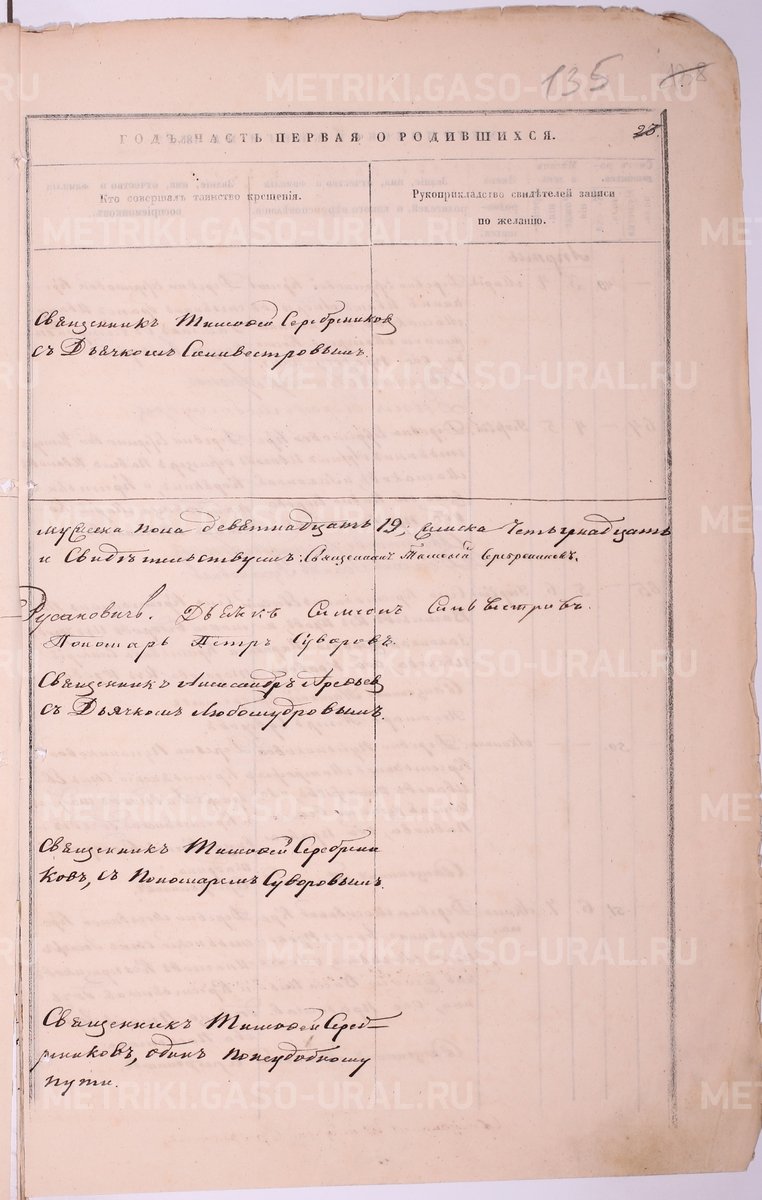 135 138
28.
ГОДЪ ЧАСТЬ ПЕРВАЯ О РОДИВШИХСЯ.
Кто совершалъ таинство крещенія.
Рукоприкладство свидѣтелей записи
по желанію.
Священникъ Тимоѳей Серебрениковъ
съ Дьячкомъ Силивестровымъ.
мужеска пола девятнадцать 19; женска Четырнадцать
и Свидѣтельствуемъ: Священникъ Тимоѳей Серебрениковъ.
Русановичъ. Дьячекъ Симеонъ Сильвестровъ.
Пономарь Петръ Суворовъ.
Священникъ Александръ Арефьев
съ Дьячкомъ Любомудровымъ.
Священникъ Тимоѳей Серебрени
ковъ, съ Пономаремъ Суворовымъ.
Священникъ Тимоѳей Сереб-
рениковъ, одинъ понеудобному
пути.
METRIKI.GASO-URAL.RU